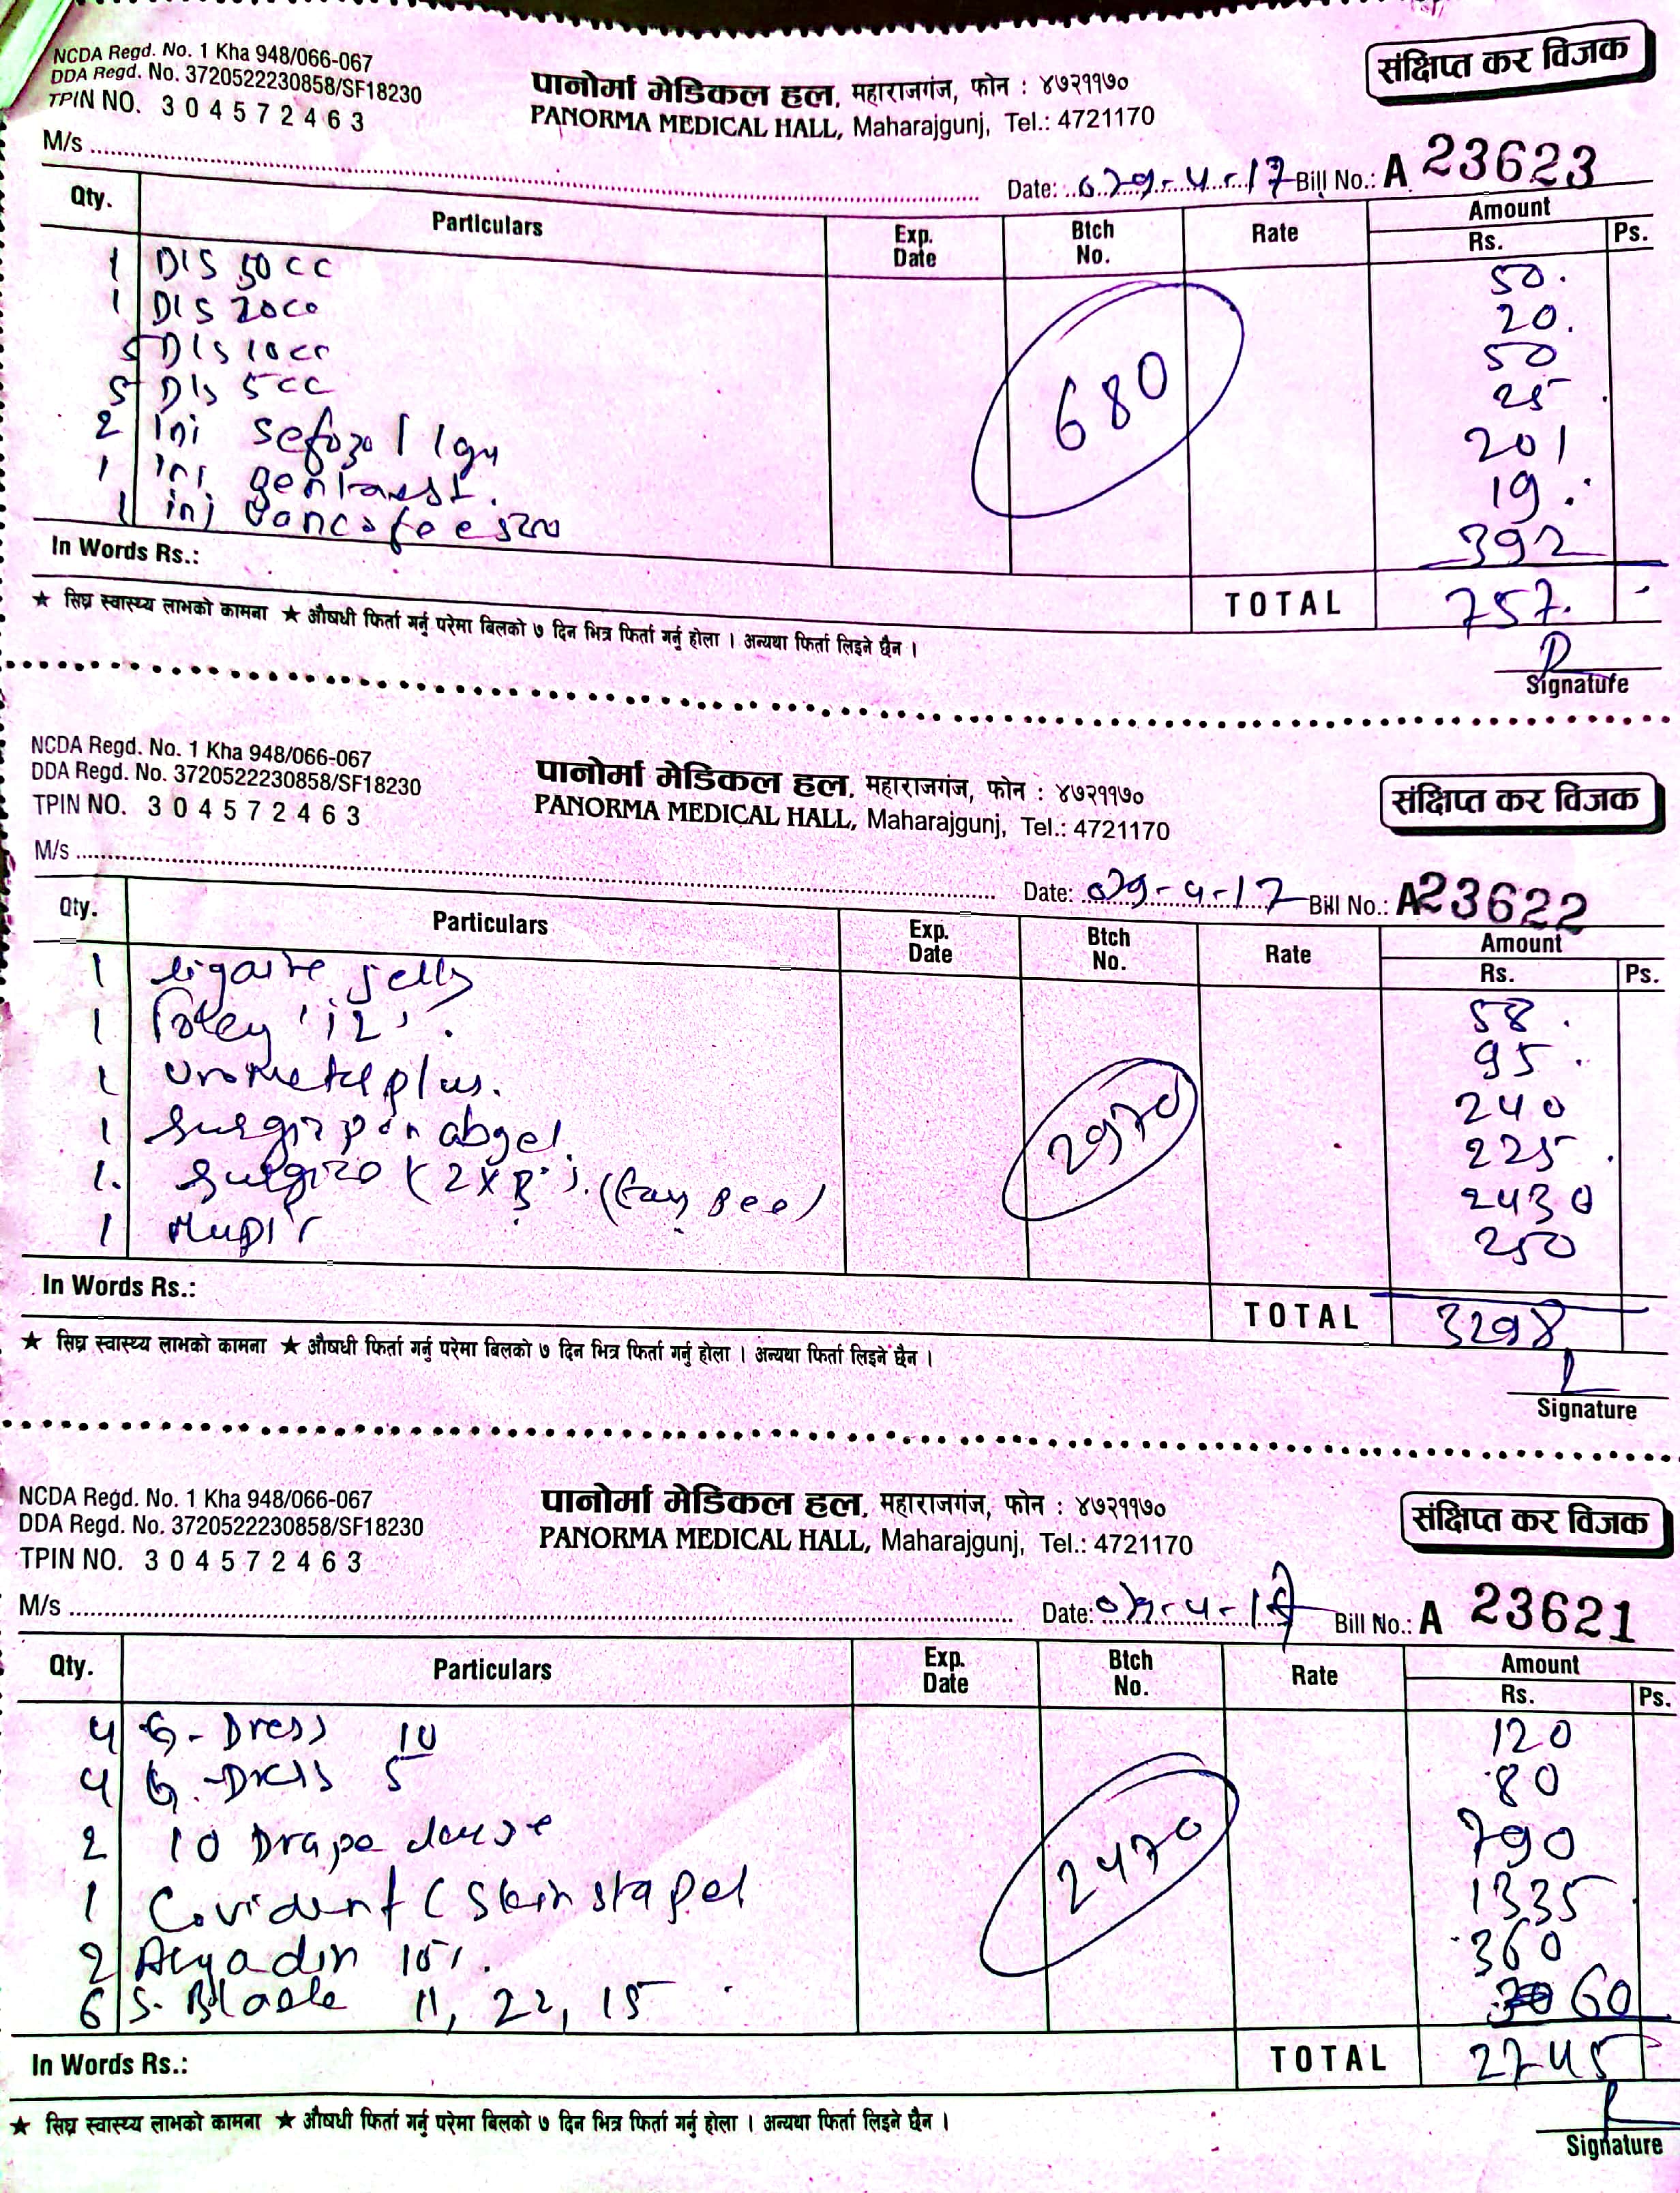 NCDA Regd. No. 1 Kha 948/066-067
DDA Regd. No. 3720522230858/SF18230
TPIN NO. 3 0 4 5 7 2 4 6 3
पानोर्मा मेडिकल हल, महाराजगंज, फोन : ४७२११७०
PANORMA MEDICAL HALL, Maharajgunj, Tel.: 4721170
संक्षिप्त कर विजक
M/s
Date: 079-4-17 Bill No.: A 23623
Qty. Particulars Exp. Date Btch No. Rate Amount Rs. Ps.
1 DIS 50 CC 50.
1 DIS 20cc 20.
5 DIS 10cc 50
5 DIS 5 CC 25
2 Inj 201
1 Inj 19.
1 inj 392
680
In Words Rs.:
TOTAL 757.
★ सिघ्र स्वास्थ्य लाभको कामना ★ औषधी फिर्ता गर्नु परेमा बिलको ७ दिन भित्र फिर्ता गर्नु होला । अन्यथा फिर्ता लिइने छैन ।
Signature
NCDA Regd. No. 1 Kha 948/066-067
DDA Regd. No. 3720522230858/SF18230
TPIN NO. 3 0 4 5 7 2 4 6 3
पानोर्मा मेडिकल हल, महाराजगंज, फोन : ४७२११७०
PANORMA MEDICAL HALL, Maharajgunj, Tel.: 4721170
संक्षिप्त कर विजक
M/s
Date: 079-4-17 Bill No.: A23622
Qty. Particulars Exp. Date Btch No. Rate Amount Rs. Ps.
1 jelly 58.
1 Foley '12'. 95.
1 plus. 240
1 abgel 225.
1. (2X3"). 2430
1 Mupir 250
2970
In Words Rs.:
TOTAL 3298
★ सिघ्र स्वास्थ्य लाभको कामना ★ औषधी फिर्ता गर्नु परेमा बिलको ७ दिन भित्र फिर्ता गर्नु होला । अन्यथा फिर्ता लिइने छैन ।
Signature
NCDA Regd. No. 1 Kha 948/066-067
DDA Regd. No. 3720522230858/SF18230
TPIN NO. 3 0 4 5 7 2 4 6 3
पानोर्मा मेडिकल हल, महाराजगंज, फोन : ४७२११७०
PANORMA MEDICAL HALL, Maharajgunj, Tel.: 4721170
संक्षिप्त कर विजक
M/s
Date: Bill No.: A 23621
Qty. Particulars Exp. Date Btch No. Rate Amount Rs. Ps.
4 G-Dress 10 120
4 G.-Dress 5 80
2 10 Drape 790
1 Covident (Skin stapel 1335
2 10%. 360
6 S. Blade 11, 22, 15 60
2470
In Words Rs.:
TOTAL 2745
★ सिघ्र स्वास्थ्य लाभको कामना ★ औषधी फिर्ता गर्नु परेमा बिलको ७ दिन भित्र फिर्ता गर्नु होला । अन्यथा फिर्ता लिइने छैन ।
Signature